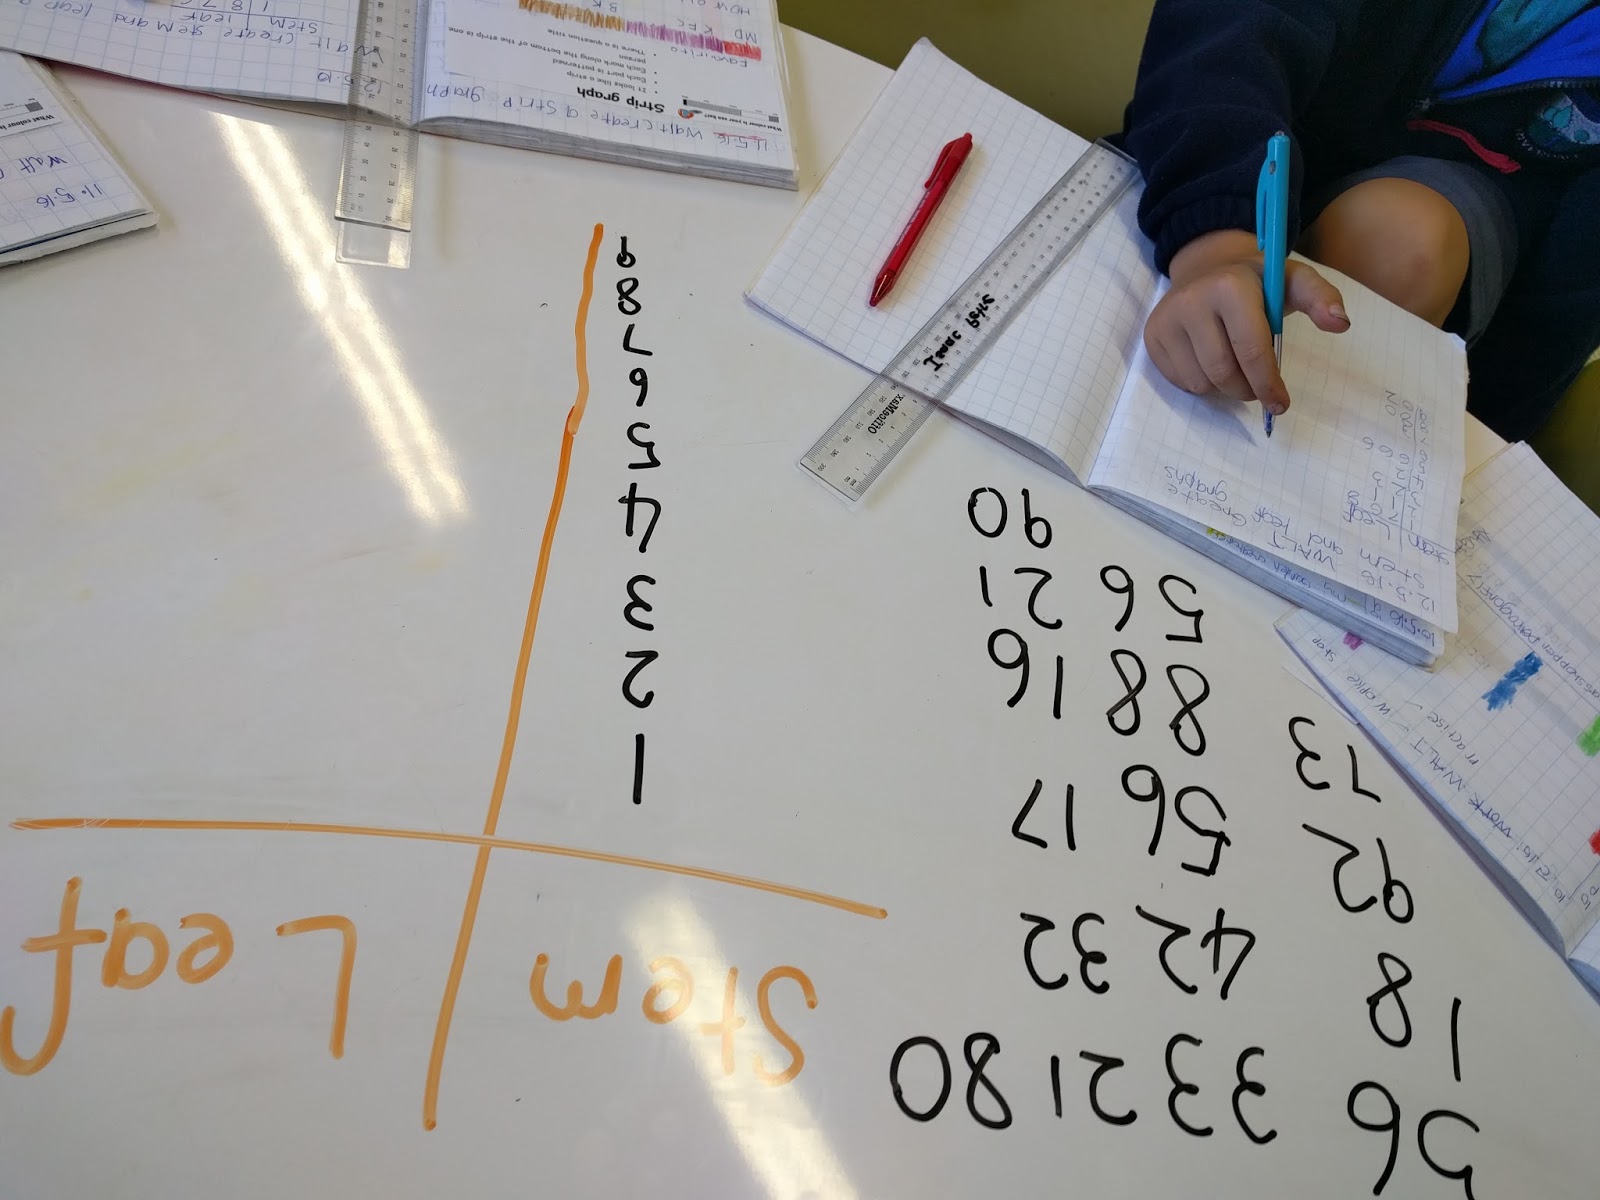 56 33 21 80
18 42 32
92 56 17
73 88 16
56 21
90
Stem Leaf
1
2
3
4
5
6
7
8
9
12.5.16 WALT create
stem and leaf graphs
stem Leaf
Isaac
OfficeMax
11.5.16 Walt create a strip graph
What colour is your sun hat?
Strip graph
• It looks like a strip
• Each part is patterned
• mark along the bottom of the strip is one person
• There is a question title
MD KFC BK
12.5.16
Walt create stem and leaf
stem leaf
1 8 7 6
11.5.16
Walt
What colour is
WALT
practise
work
stop